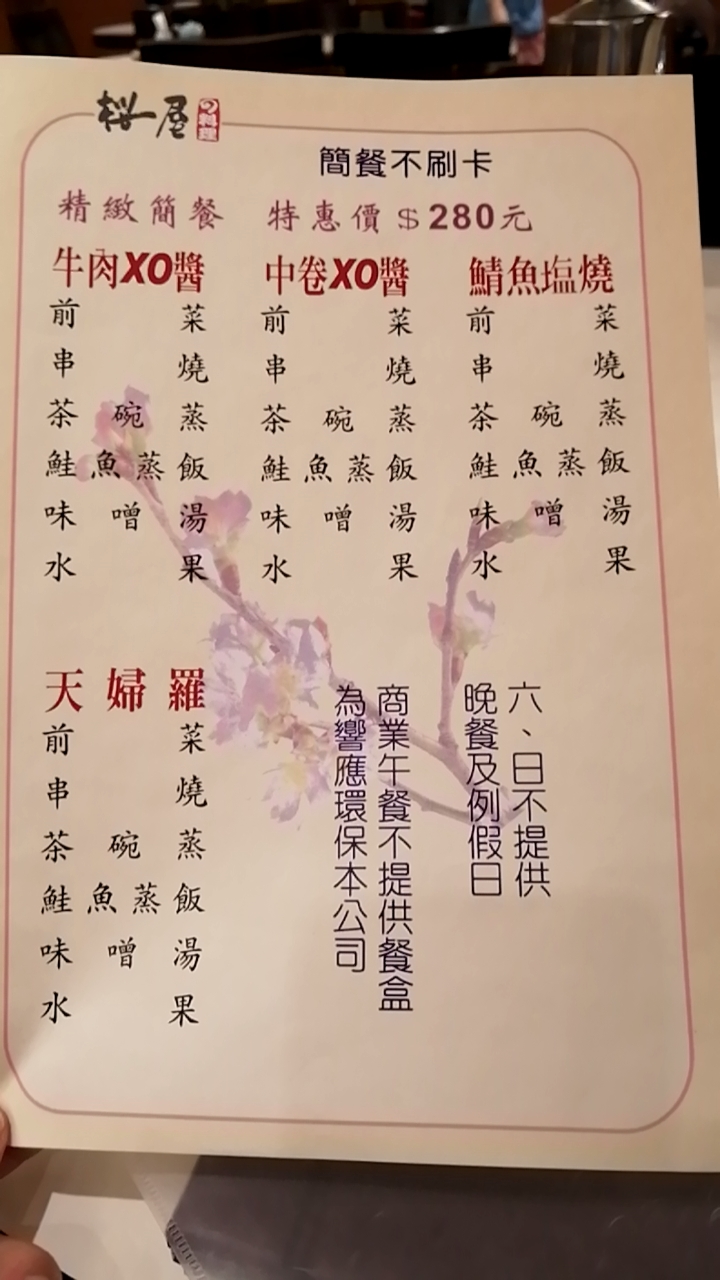 桜屋 の料理
簡餐不刷卡
精緻簡餐 特惠價$280元
牛肉XO醬
前菜
串燒
茶碗蒸
鮭魚蒸飯
味噌湯
水果
中卷XO醬
前菜
串燒
茶碗蒸
鮭魚蒸飯
味噌湯
水果
鯖魚塩燒
前菜
串燒
茶碗蒸
鮭魚蒸飯
味噌湯
水果
天婦羅
前菜
串燒
茶碗蒸
鮭魚蒸飯
味噌湯
水果
六、日不提供
晚餐及例假日
商業午餐不提供餐盒
為響應環保本公司